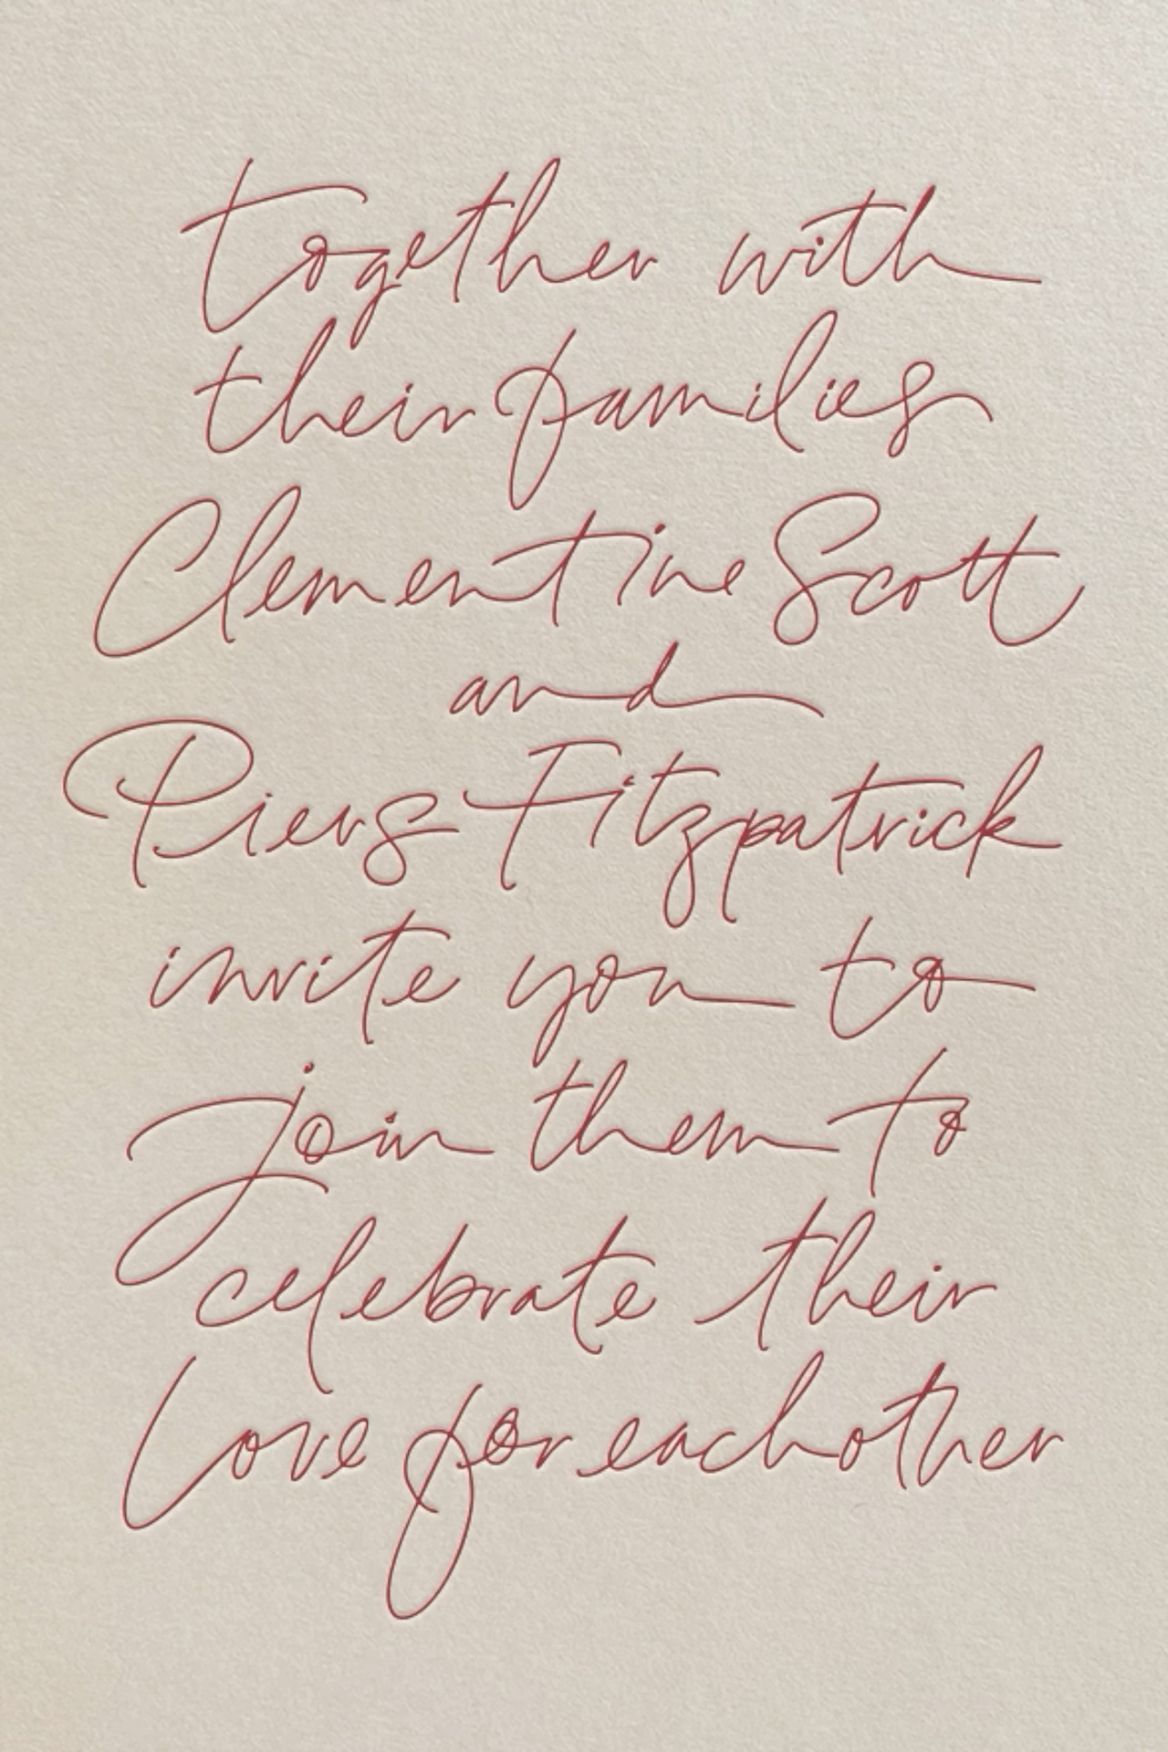 together with
their families
Clementine Scott
and
Piers Fitzpatrick
invite you to
join them to
celebrate their
love for eachother